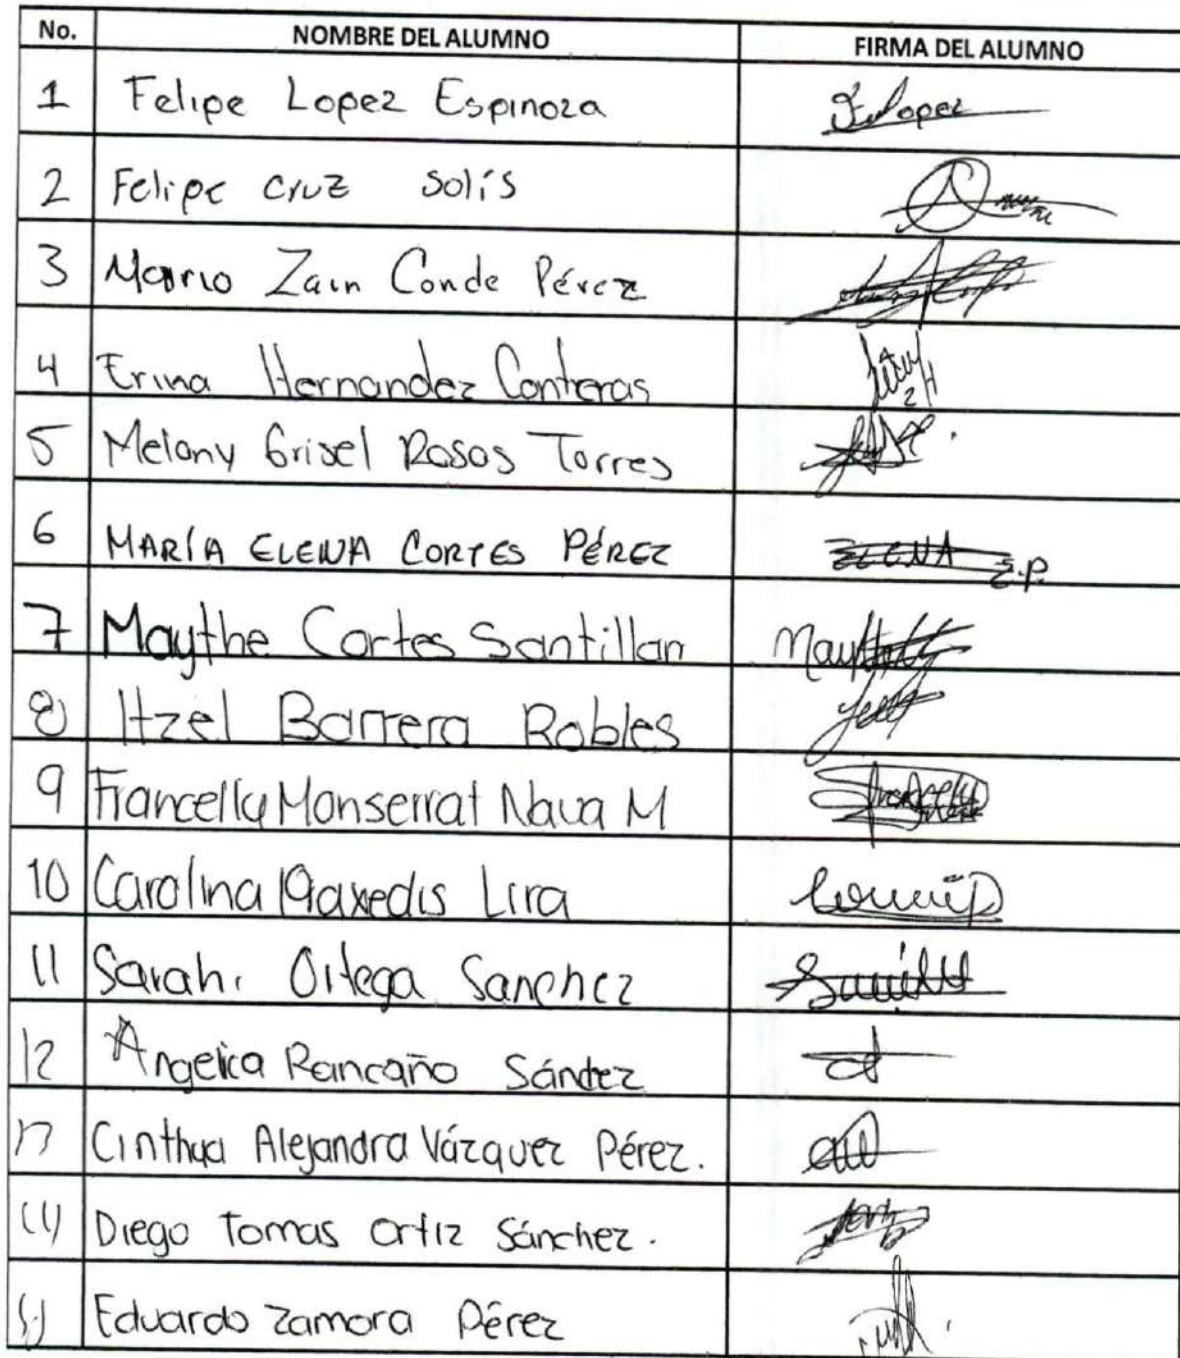 No. NOMBRE DEL ALUMNO FIRMA DEL ALUMNO
1 Felipe Lopez Espinoza Lopez
2 Felipe Cruz Solís
3 Mario Zain Conde Pérez
4 Erina Hernandez Contreras
5 Melany Grisel Rosas Torres
6 MARÍA ELENA CORTES PÉREZ ELENA E.P.
7 Maythe Cortes Santillan
8 Itzel Barrera Robles
9 Francelly Monserrat Nava M
10 Carolina Lira
11 Sarahi Ortega Sanchez
12 Angelica Rancaño Sánchez
13 Cinthya Alejandra Vázquez Pérez.
14 Diego Tomas Ortiz Sánchez.
Eduardo Zamora Pérez